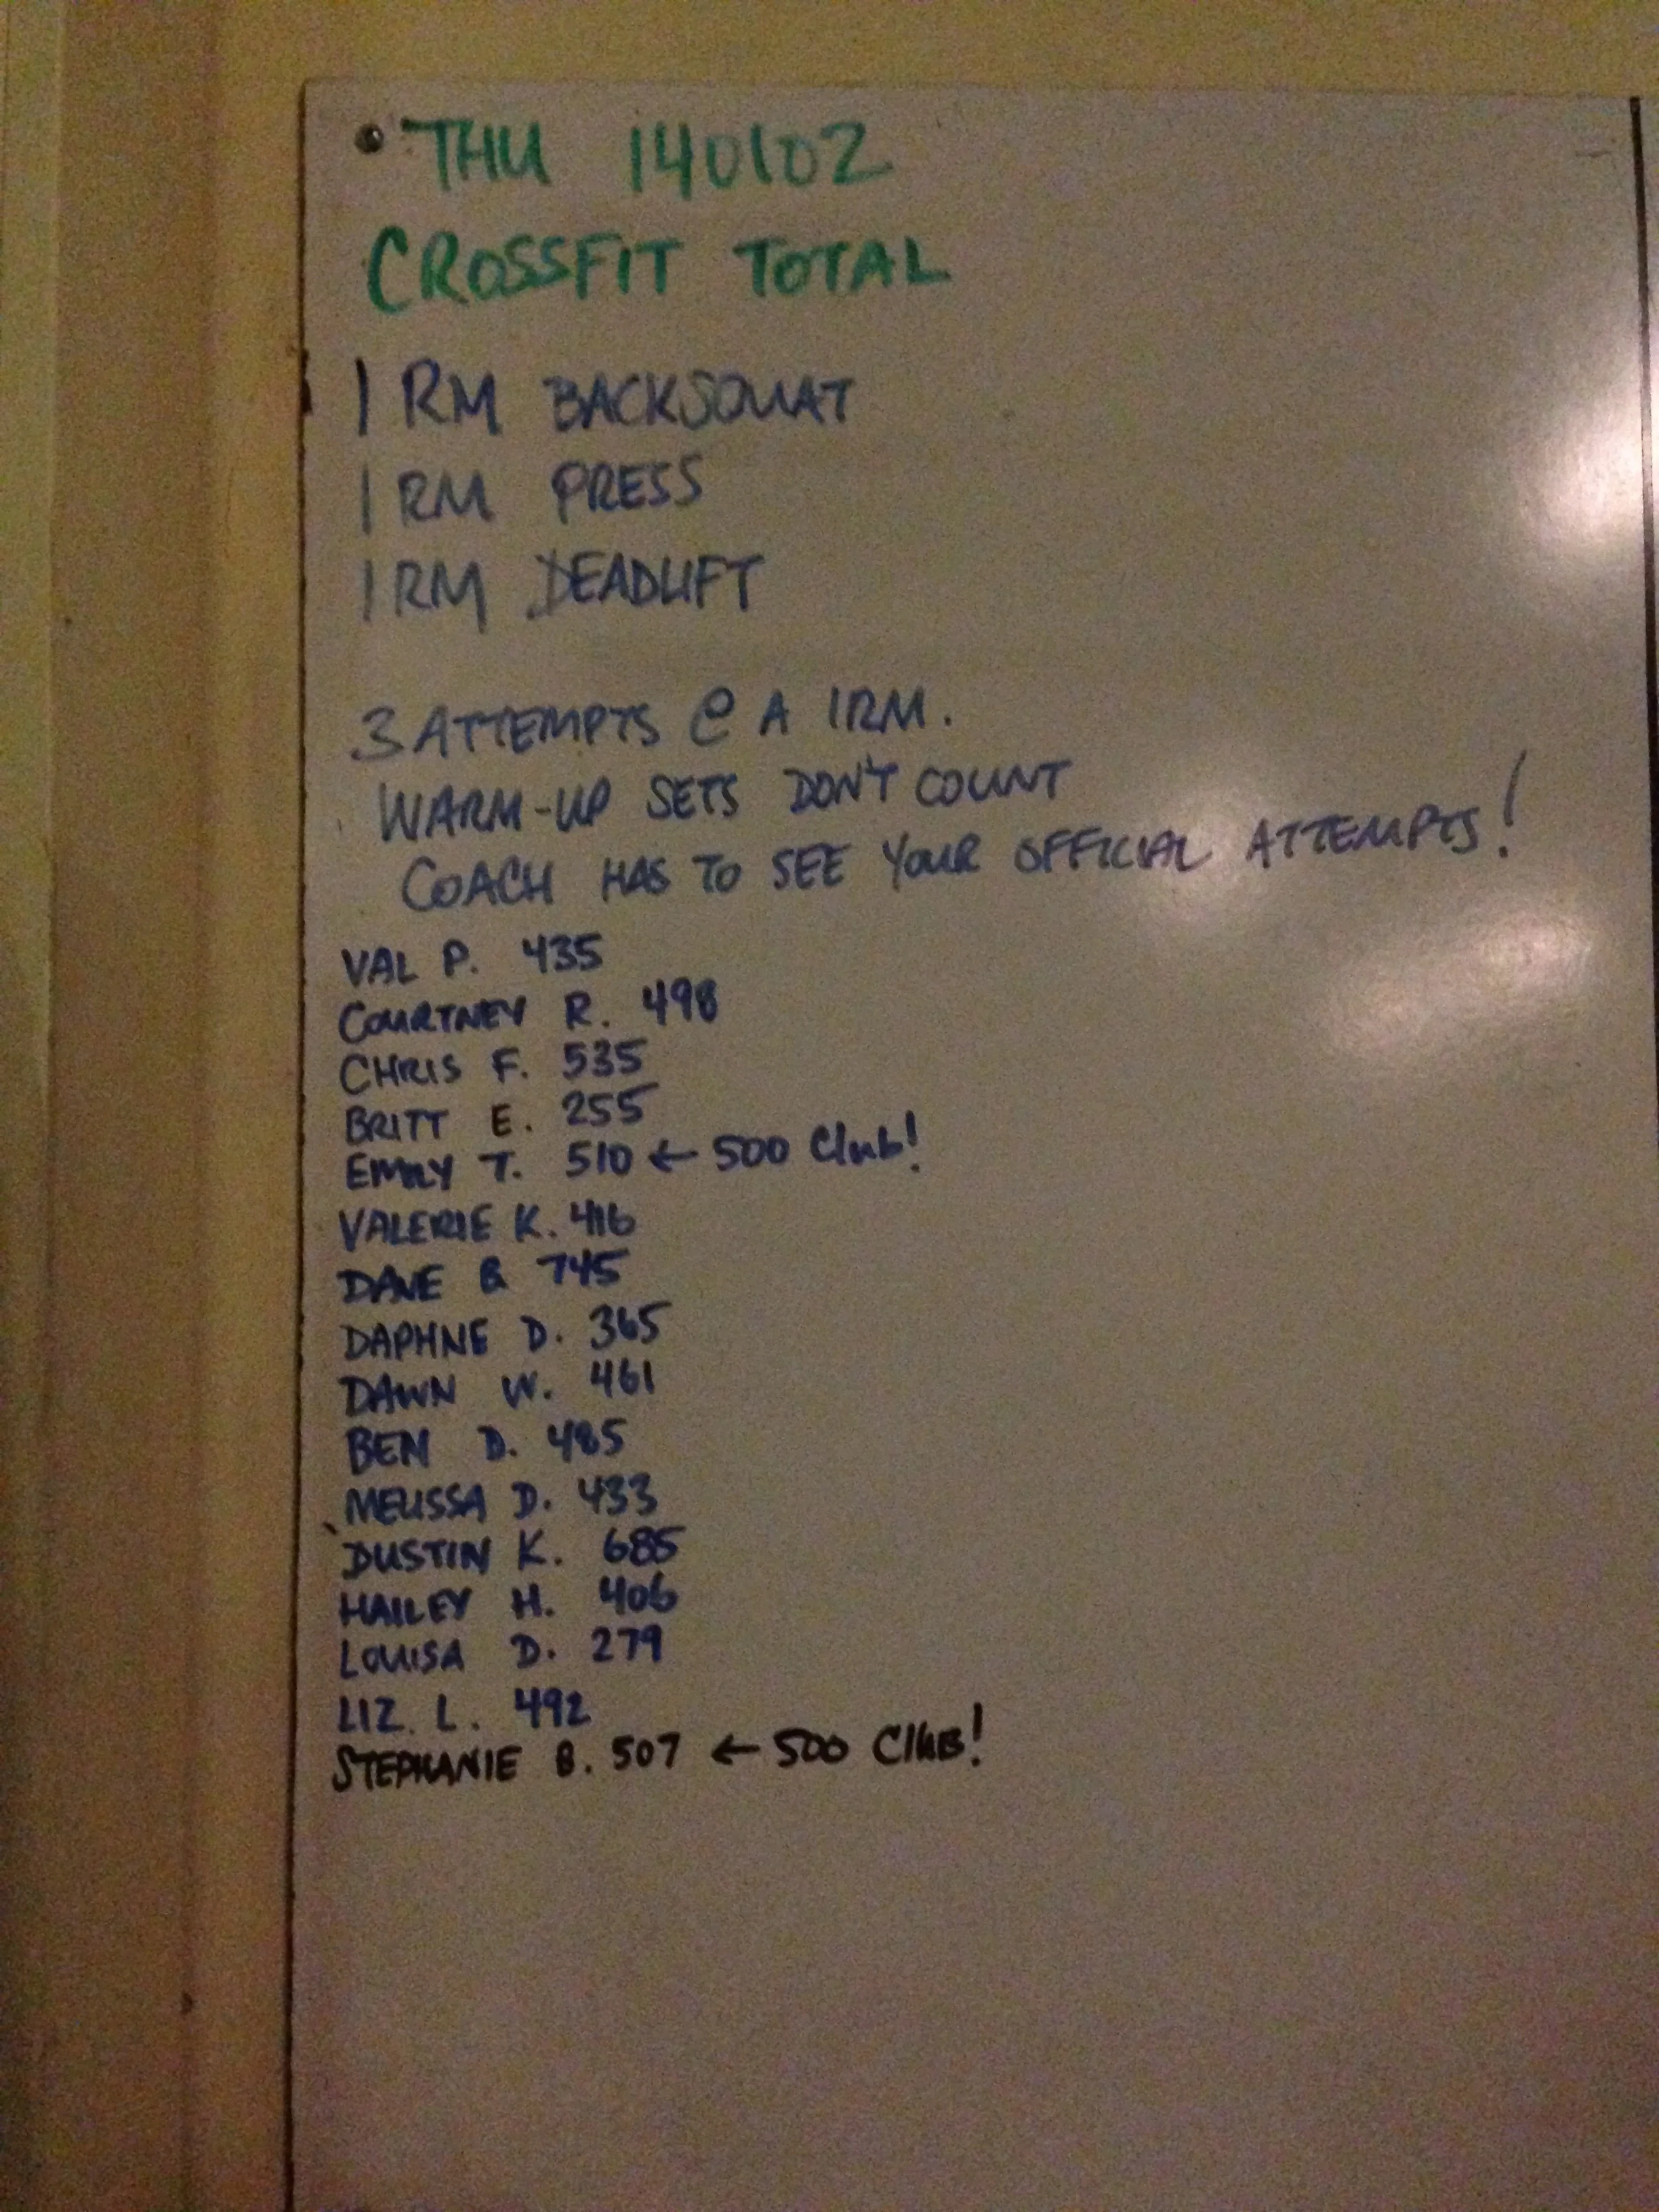 THU 140102
CROSSFIT TOTAL
1 RM BACKSQUAT
1 RM PRESS
1 RM DEADLIFT
3 ATTEMPTS @ A 1RM.
WARM-UP SETS DON'T COUNT
COACH HAS TO SEE YOUR OFFICIAL ATTEMPTS!
VAL P. 435
COURTNEY R. 498
CHRIS F. 535
BRITT E. 255
EMILY T. 510 ← 500 Club!
VALERIE K. 416
DAVE B 745
DAPHNE D. 365
DAWN W. 461
BEN D. 485
MELISSA D. 433
DUSTIN K. 685
HAILEY H. 406
LOUISA D. 279
LIZ. L. 492
STEPHANIE B. 507 ← 500 CLUB!